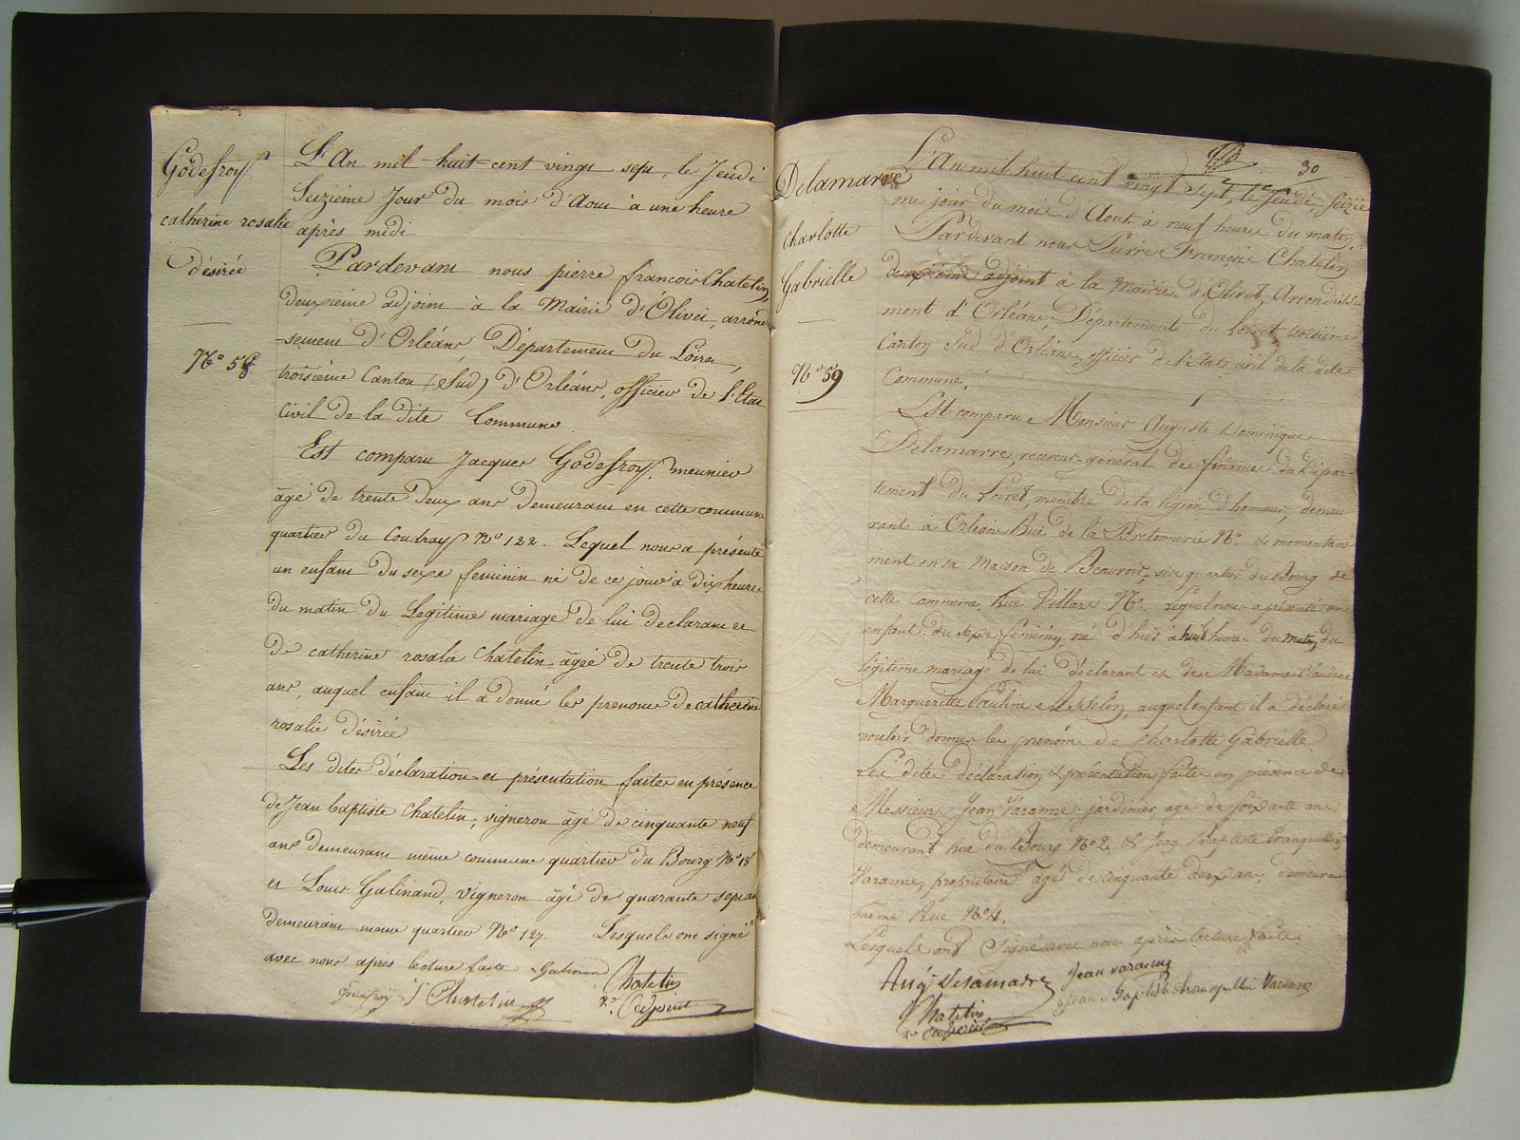 Godefroy
catherine rosalie
désirée
N° 58
L'An mil-huit-cent vingt sept, le Jeudi
Seizième Jour du mois d'Aout à une heure
après midi
Pardevant nous pierre françois Chatelin,
deuxième adjoint à la Mairie d'Olivet, arrondis
-sement d'Orléans Département du Loiret,
troisième Canton (Sud) d'Orléans, officier de l'Etat
Civil de la dite Commune.
Est comparu Jacques Godefroy, meunier
âgé de trente deux ans demeurant en cette commune
quartier du Coudray N° 122. Lequel nous a présenté
un enfant du sexe feminin né de ce jour à dix heures
du matin du Legitime mariage de lui déclarant et
de catherine rosalie Chatelin âgée de trente trois
ans, auquel enfant il a donné les prenoms de catherine
rosalie désirée
Les dites déclaration et présentation faites en présence
de Jean baptiste Chatelin, vigneron âgé de cinquante neuf
ans demeurant même commune quartier du Bourg N° 18
et Louis Galinand, vigneron âgé de quarante sept ans
demeurant même quartier N° 127. Lesquels ont signé
avec nous après lecture faite Galinand Chatelin
Godefroy J Chatelin 2e adjoint
30
Delamarre
Charlotte
Gabrielle
N° 59
L'An mil huit cent vingt sept, le Jeudi, seiziè
me jour du mois d'Aout à neuf heures du matin,
Pardevant nous Pierre François Chatelin
deuxième adjoint à la Mairie d'Olivet, Arrondisse
ment d'Orléans, Département du Loiret troisième
Canton Sud d'Orléans, officier de l'Etat civil de la dite
Commune.
Est comparu Monsieur Auguste Dominique
Delamarre, receveur-général des finances du Dépar-
tement du Loiret, membre de la légion d'honneur, demeu
rant à Orléans Rue de la Bretonnerie N° momentané
ment en sa Maison de Beauvoir, sise quartier du Bourg de
cette Commune, Rue N° lequel nous a présenté un
enfant du sexe féminin, né d'hui à huit heures du matin, du
légitime mariage de lui déclarant et de Madame
Marguerite Pauline auquel enfant il a déclaré
vouloir donner les prénoms de Charlotte Gabrielle
Les dites déclaration et présentation faites en présence de
Messieurs Jean Varanne jardinier, agé de soixante ans
demeurant rue du Bourg N° 2 & Jean Baptiste
Varanne, propriétaire âgé de cinquante deux ans, demeurant
même Rue N° 4.
Lesquels ont Signé avec nous après lecture faite
Aug Delamarre Jean varanne
Chatelin Jean Baptiste Varanne
2e adjoint